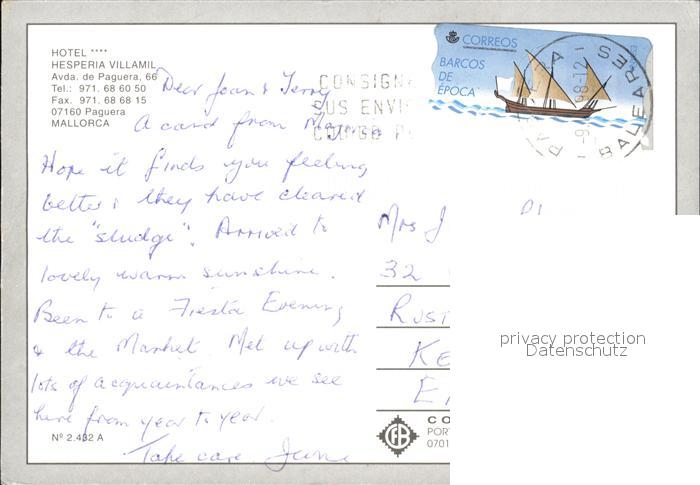 HOTEL ****
HESPERIA VILLAMIL
Avda. de Paguera, 66
Tel.: 971. 68 60 50
Fax. 971. 68 68 15
07160 Paguera
MALLORCA
CORREOS
BARCOS
DE
EPOCA
CONSIGN
SUS ENVI
BALEARES
Dear Joan & Terry
A card from
Hope it finds you feeling
better & they have cleared
the "sludge". Arrived to
lovely warm sunshine.
Been to a Fiesta Evening
& the Market. Met up with
lots of acquaintances we see
here from year to year.
Take care June
Mrs J
32
RUST
KE
privacy protection
Datenschutz
CO
POR
0701
Nº 2.432 A